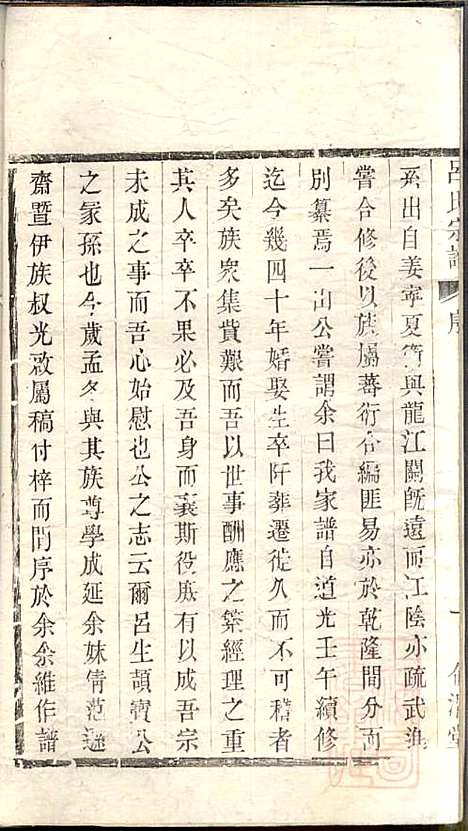 呂氏宗譜
序
一
系出自姜寧夏等與龍江關旣遠而江陰亦疏武進
嘗合修後以族屬蕃衍合編匪易亦於乾隆間分而
別纂焉一山公嘗謂余曰我家譜自道光壬午續修
迄今幾四十年婚娶生卒阡葬遷徙久而不可稽者
多矣族衆集貲艱而吾以世事酬應之繁經理之重
其人卒卒不果必及吾身而襄斯役庶有以成吾宗
未成之事而吾心始慰也公之志云爾呂生頡寶公
之冢孫也今歲孟冬與其族尊學成延余妹倩范遜
齋曁伊族叔光啟屬稿付梓而問序於余余維作譜